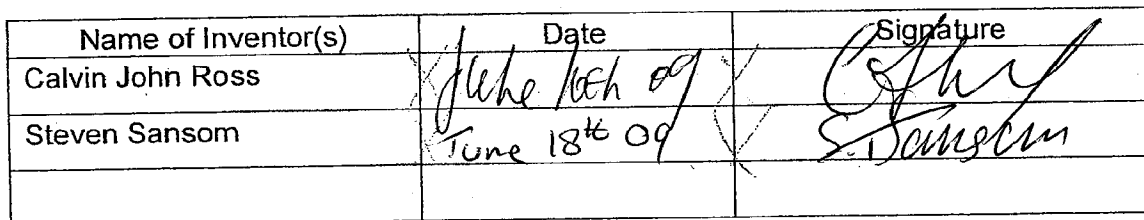 Name of Inventor(s) Date Signature
Calvin John Ross June 16th 09
Steven Sansom June 18th 09 S. Sansom